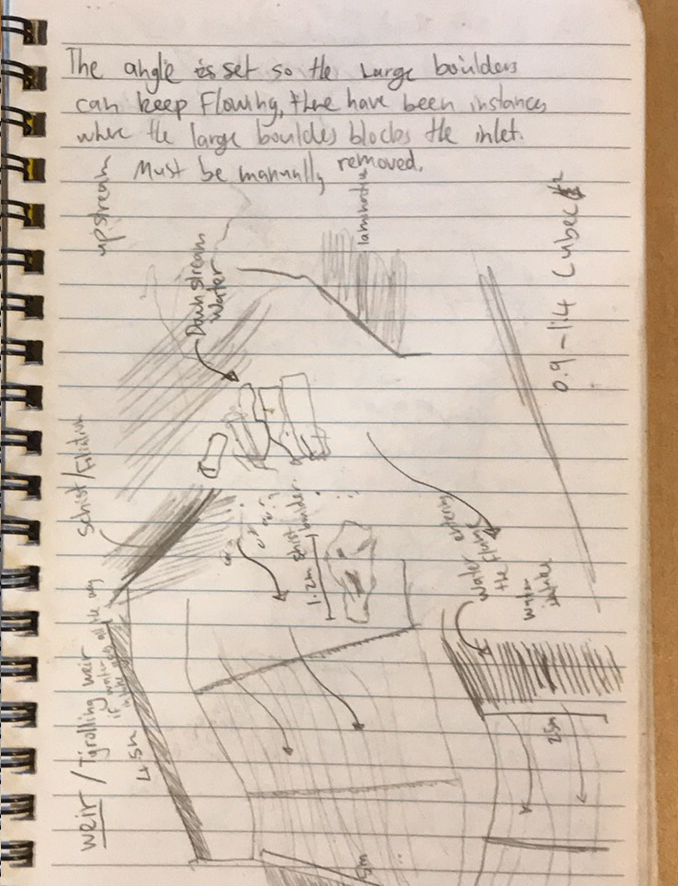 The angle is set so the Large boulders
can keep Flowing, there have been instances
where the large boulders blocks the inlet.
Must be manually removed.
upstream
Down stream
Water
laminated
0.9 - 1.4 Cubec
Schist/Foliation
shist
boulder
1.2m
water entering
the flume
water
intake
weir / Tyrolling weir
if water
4.5m
25m
5m